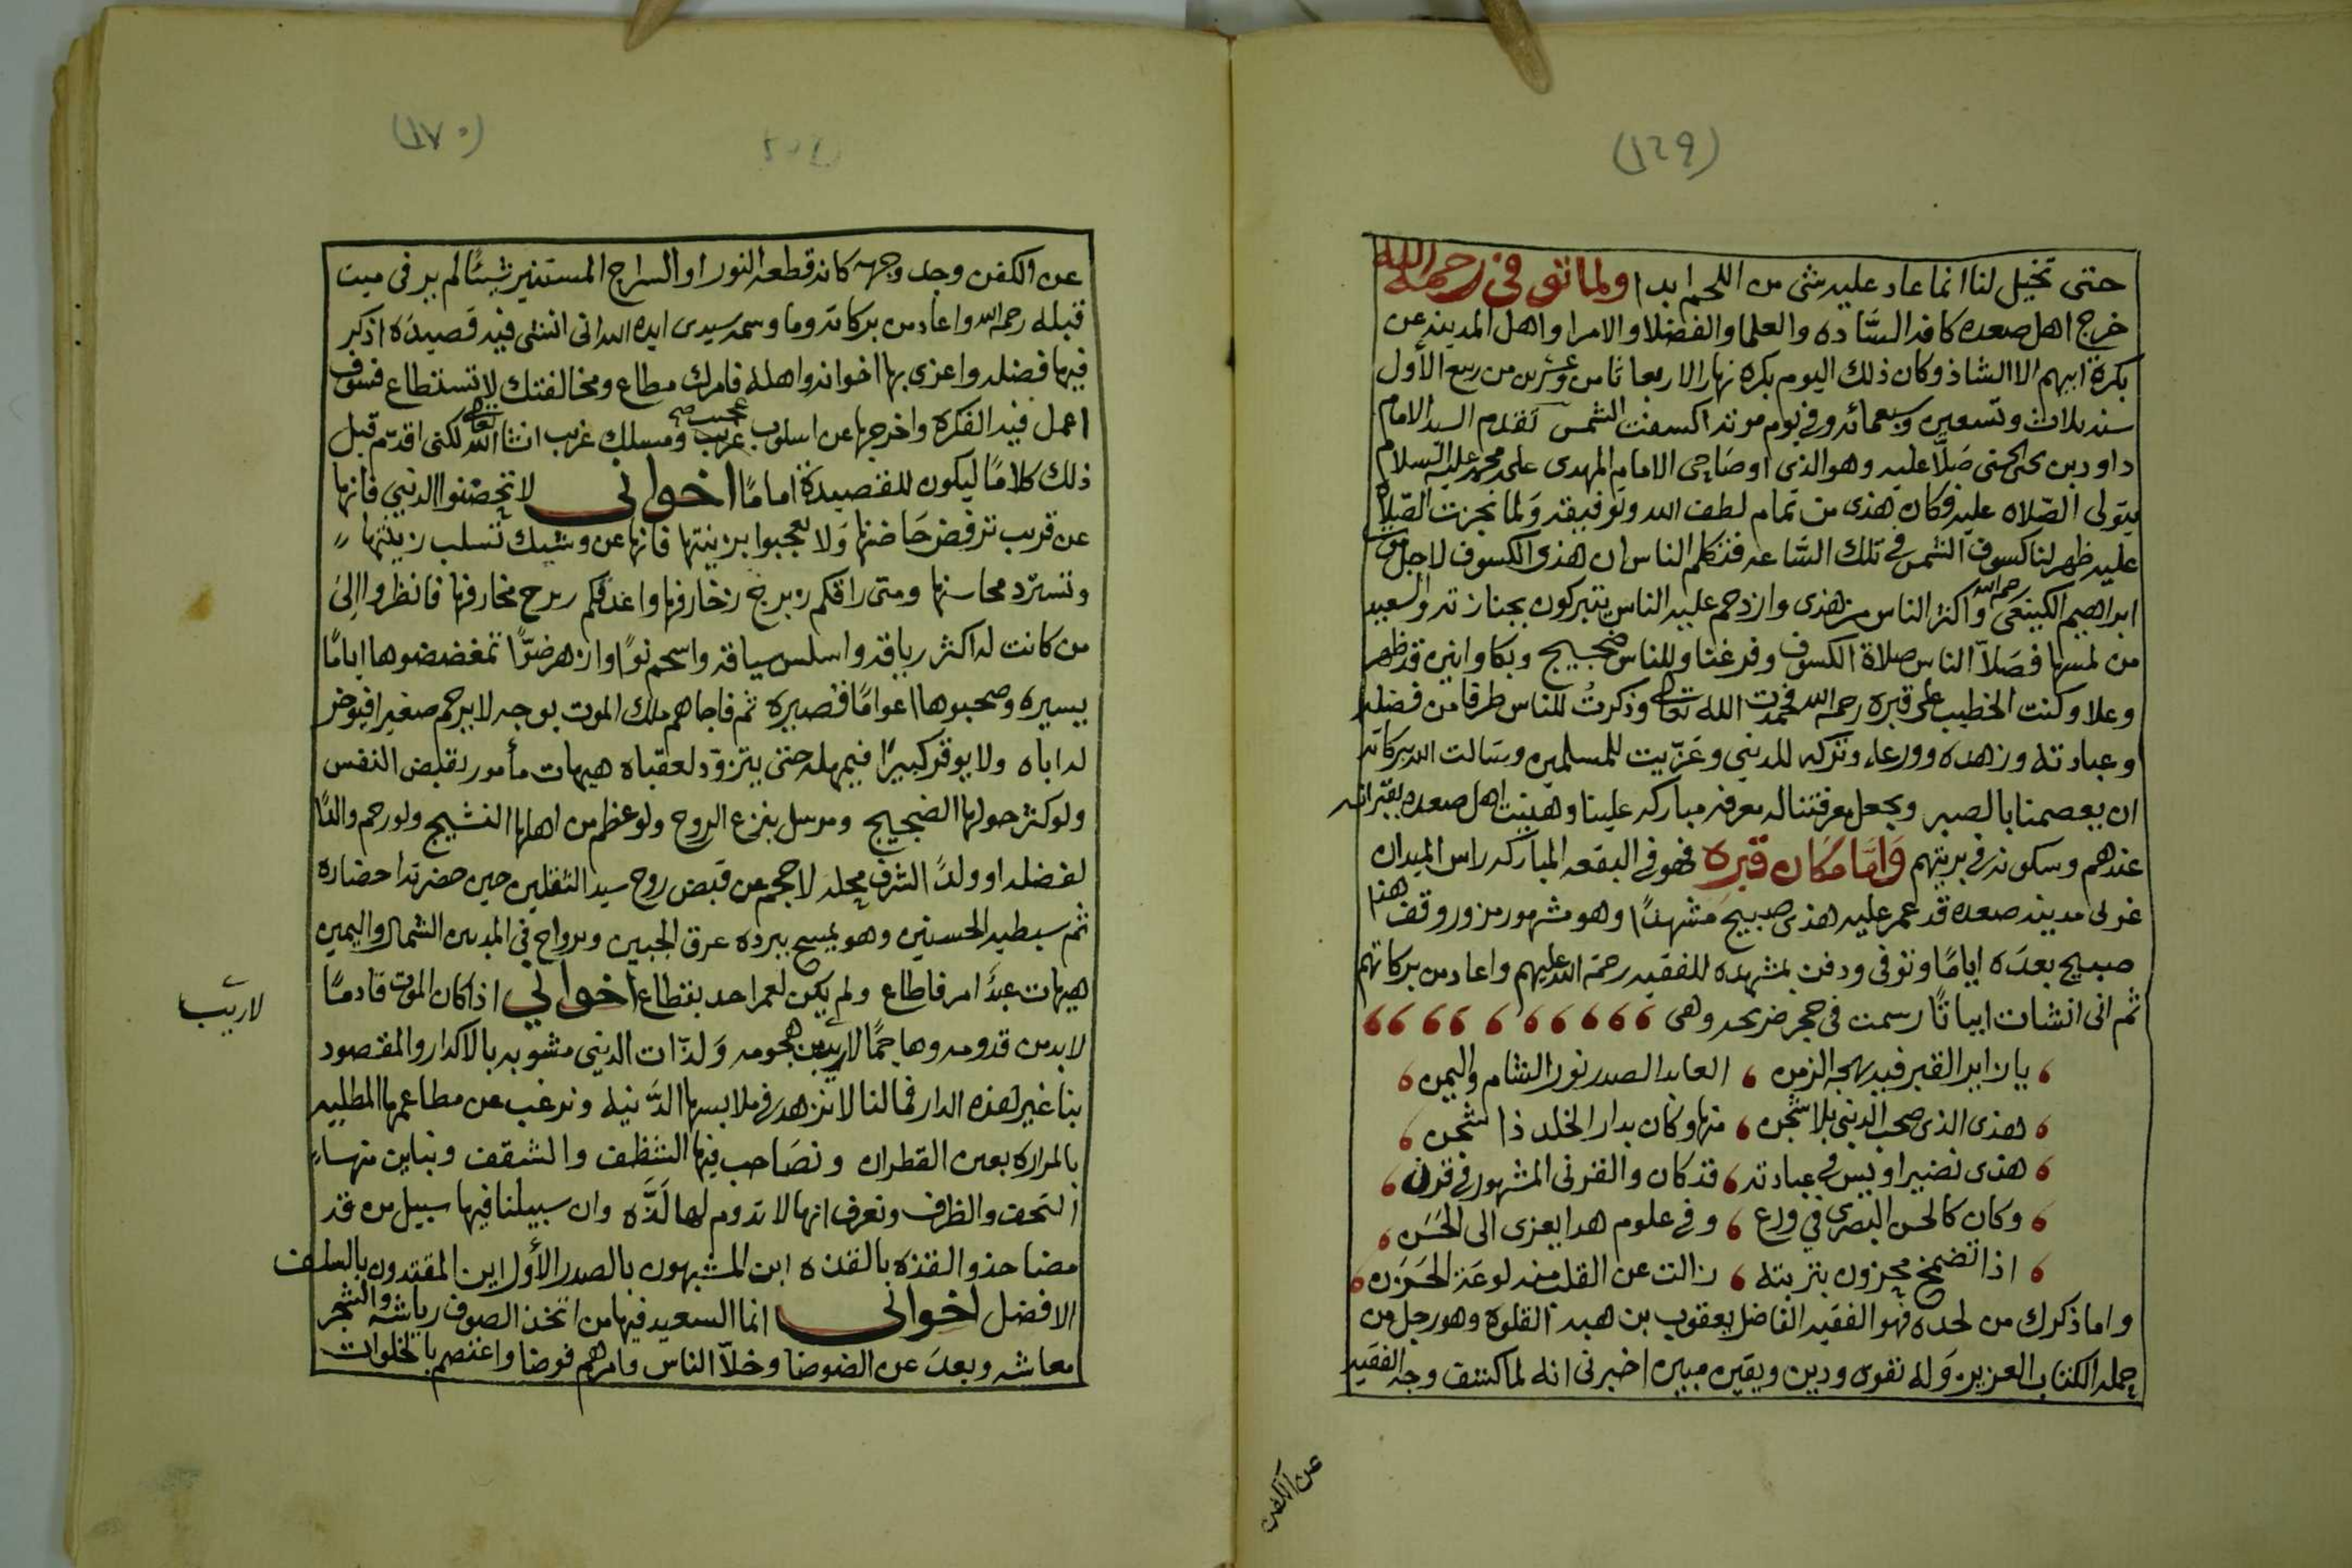 (١٦٩)
حتى تخيل لنا انما عاد عليه شى من اللحم ابدا ولما توفى رحمه الله
خرج اهل صعده كافه السَّاده والعلما والفضلا والامرا واهل المدينه عن
بكرة ابيهم الا الشاذ وكان ذلك اليوم بكره نهار الاربعا ثامن وعشرين من ربيع الأول
سنه ثلاث وتسعين وسبعمائه وفى يوم موته اكسفت الشمس تقدم السيد الامام
داود بن يحيى الحسنى صَلَّا عليه وهو الذى اوصَا الامام المهدى على محمد عليه السلام
يتولى الصّلاه عليه فكان هذى من تمام لطف الله وتوفيقه وَلما نجزت الصَّلاه
عليه ظهر لنا كسوف الشمس فى تلك السَّاعه فتكلم الناس ان هذى الكسوف لاجل موت
ابراهيم الكينعى رحمه الله واكثر الناس من هذى وازدحم عليه الناس يتبركون بجنازته والسعيد
من لمسها فصَلاّ الناس صلاة الكسوف وفرغنا وللناس ضجيج وبكا وانين قد ظهر
وعلا وكنت الخطيب على قبره رحمه الله فحمدت الله تعالى وذكرتُ للناس طرفا من فضله
وعبادته وزهده وورعه وتركه للدنيى وعَزّيت للمسلمين وسَالت الله ببركاته
ان يعصمنا بالصبر ويجعل معرفتنا له معرفه مباركه علينا وهنيت اهل صعده بقبرانه
عندهم وسكونه فى بريتهم وَامّا مَكان قبره فهو فى البقعه المباركه راس الميدان
غربى مدينه صعده قد عمر عليه هذى صبيح مشهدًا وهو مشهور مزور وقف هذا
صبيح بعدَه ايامًا وتوفى ودفن بمشهده للفقيه رحمة الله عليهم واعاد من بركاتهم
ثم انى انشات ابياتًا رسمت فى حجر ضريحه وهى
يا زاير القبر فيه بهجه الزمن ، العابد الصدر نور الشام واليمن
هذى الذى صحب الدنيى بلا شجن ، منها وكان بدار الخلد ذا شجن
هذى نضير اويس فى عبادته ، قد كان والقرنى المشهور فى قرن
وكان كالحسن البصرى فى ورع ، وفى علوم هدا يعزى الى الحَسَن
اذا تضمخ محزون بتربته ، زالت عن القلب منه لوعة الحَزَن
واما ذكرك من لحده فهو الفقيه الفاضل يعقوب بن هبه القلوة وهو رجل من
حمله الكتاب العزيز وَله تقوى ودين ويقين مبين اخبرنى انه لما كشف وجه الفقيه
عن الكفن
(١٧٠)
عن الكفن وجد وجهه كانه قطعه النور او السراج المستنير شيئًا لم ير فى ميت
قبله رحمه الله واعاد من بركاته وما وسمه سيدى ايده الله انى انشى فيه قصيدَه اذكر
فيها فضله واعزى بها اخوانه واهله فامرك مطاع ومخالفتك لا تستطاع فسوف
اعمل فيه الفكرة واخرجها عن اسلوب عجيب صح غريب ومسلك غريب انشا الله تعالى لكنى اقدّم قبل
ذلك كلامًا ليكون للقصيدَة امامًا اخوانى لا تحضنوا الدنيى فانها
عن قريب ترفض حَاضنها وَلا تعجبوا بزينتها فانها عن وشيك تسلب زينتها
وتسترد محاسنها ومتى راقكم زبرج زخارفها واغدقكم مخارفها فانظروا الى
من كانت له اكثر رياقه واسلس سياقه واسحم نوًا وازهر ضوًّا تمغضضوها ايامًا
يسيره وصحبوها اعوامًا قصيره ثم فاجاهم ملك الموت بوجه لا يرحم صغيرا فيوخر
له اباه ولا يوقر كبيرًا فيمهله حتى يتزوّد لعقباه هيهات مأمور بقبض النفس
ولو كثر حولها الضجيج ومرسل بنزع الروح ولو عظم من اهلها النشيج ولو رحم والدًا
لفضله او ولدً الشرف محله لاحجم عن قبض روح سيد الثقلين حين حضرته احضاره
ثم سبطيه الحسنين وهو يمسح ببرده عرق الجبين ويرواح فى اليدين الشمال واليمين
هيهات عبدً امر فاطاع ولم يكن لعمر احد بقطاع اخوانى اذا كان الموت قادمًا
لابد من قدومه وهاجمًا لا ريب من هجومه وَلذّات الدنيى مشوبه بالاكدار والمقصود
لا ريب
بنا غير هذه الدار فما لنا لا نزهد فى ملابسها الدَّنيه ونرغب عن مطاعمها المطليه
بالمراره بعين القطران ونصَاحب فيها الشظف والشقف ونباين منها
التحف والظرف ونعرف انها لا تدوم لها لَذَّه وان سبيلنا فيها سبيل من قد
مضا حذو القذه بالقذه اين المشبهون بالصدر الأول اين المقتدون بالسلف
الافضل اخوانى انما السعيد فيها من اتخذ الصوف رياشه والشجر
معاشه وبعدَ عن الضوضا وخلاّ الناس وامرهم فوضا واعتصم بالخلوات